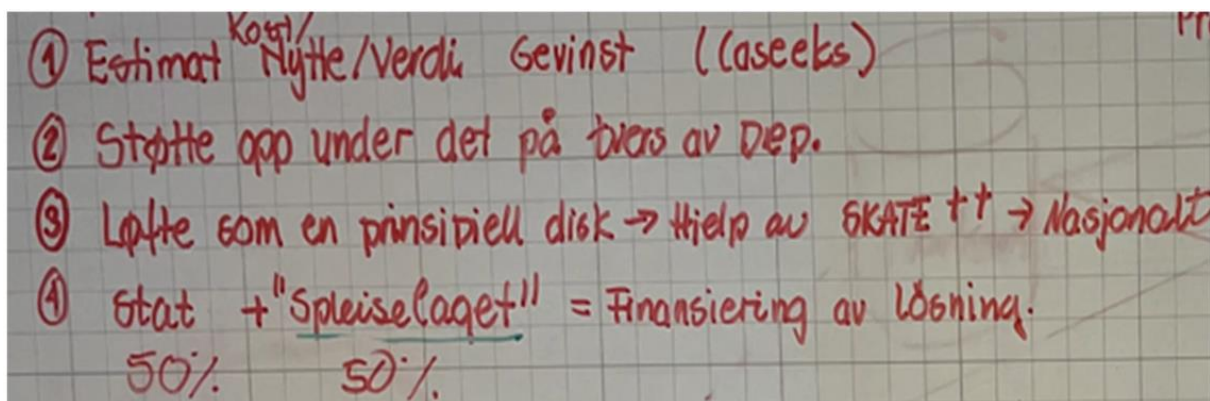 Kost/
① Estimat Nytte/Verdi Gevinst (Caseeks)
② Støtte opp under det på tvers av Dep.
③ Løfte som en prinsipiell disk → Hjelp av SKATE ++ → Nasjonalt
④ Stat + "Spleiselaget" = Finansiering av lösning.
50% 50%